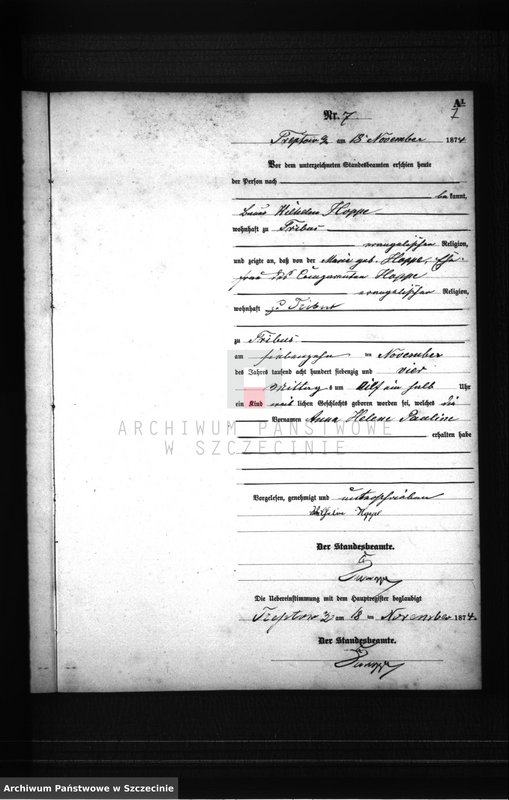 A1
Nr. 7
7
Treptow am 18 November 1874
Vor dem unterzeichneten Standesbeamten erschien heute
der Person nach
bekannt,
Wilhelm Hoppe
wohnhaft zu Tribus
evangelischen Religion,
und zeigte an, daß von der Marie geb. Hoppe, Ehe-
frau des Hoppe
evangelischen Religion,
wohnhaft zu Tribus
zu Tribus
am siebenzehn ten November
des Jahres tausend acht hundert siebenzig und vier
Mittags um Uhr
ein Kind weiblichen Geschlechts geboren worden sei, welches die
Vornamen Anna Helene Pauline
erhalten habe
ARCHIWUM PAŃSTWOWE
W SZCZECINIE
Vorgelesen, genehmigt und unterschrieben
Wilhelm Hoppe
Der Standesbeamte.
Die Uebereinstimmung mit dem Hauptregister beglaubigt
Treptow am 18 ten November 1874.
Der Standesbeamte.
Archiwum Państwowe w Szczecinie